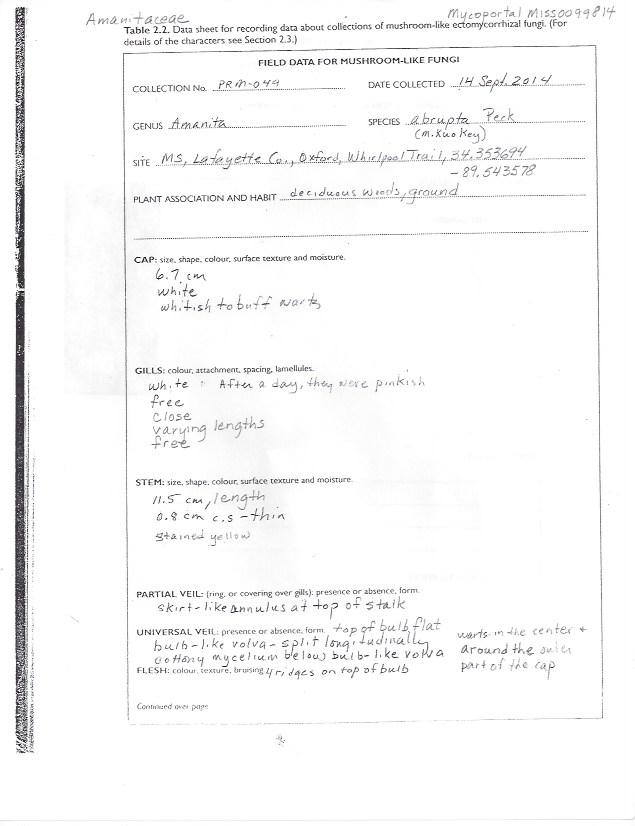 Amanitaceae
Mycoportal MISS0099814
Table 2.2. Data sheet for recording data about collections of mushroom-like ectomycorrhizal fungi. (For
details of the characters see Section 2.3.)
FIELD DATA FOR MUSHROOM-LIKE FUNGI
COLLECTION No. PRM-049 DATE COLLECTED 14 Sept. 2014
GENUS Amanita SPECIES abrupta Peck
(M. Kuo Key)
SITE MS, Lafayette Co., Oxford, Whirlpool Trail, 34.353694
-89.543578
PLANT ASSOCIATION AND HABIT deciduous woods, ground
CAP: size, shape, colour, surface texture and moisture.
6.7 cm
white
whitish to buff warts
GILLS: colour, attachment, spacing, lamellules.
white : After a day, they were pinkish
free
close
varying lengths
free
STEM: size, shape, colour, surface texture and moisture.
11.5 cm, length
0.8 cm c.s - thin
stained yellow
PARTIAL VEIL: (ring, or covering over gills): presence or absence, form.
skirt-like annulus at top of stalk
UNIVERSAL VEIL: presence or absence, form. top of bulb flat
bulb-like volva - split longitudinally
cottony mycelium below bulb-like volva
warts in the center +
around the outer
part of the cap
FLESH: colour, texture, bruising 4 ridges on top of bulb
Continued over page